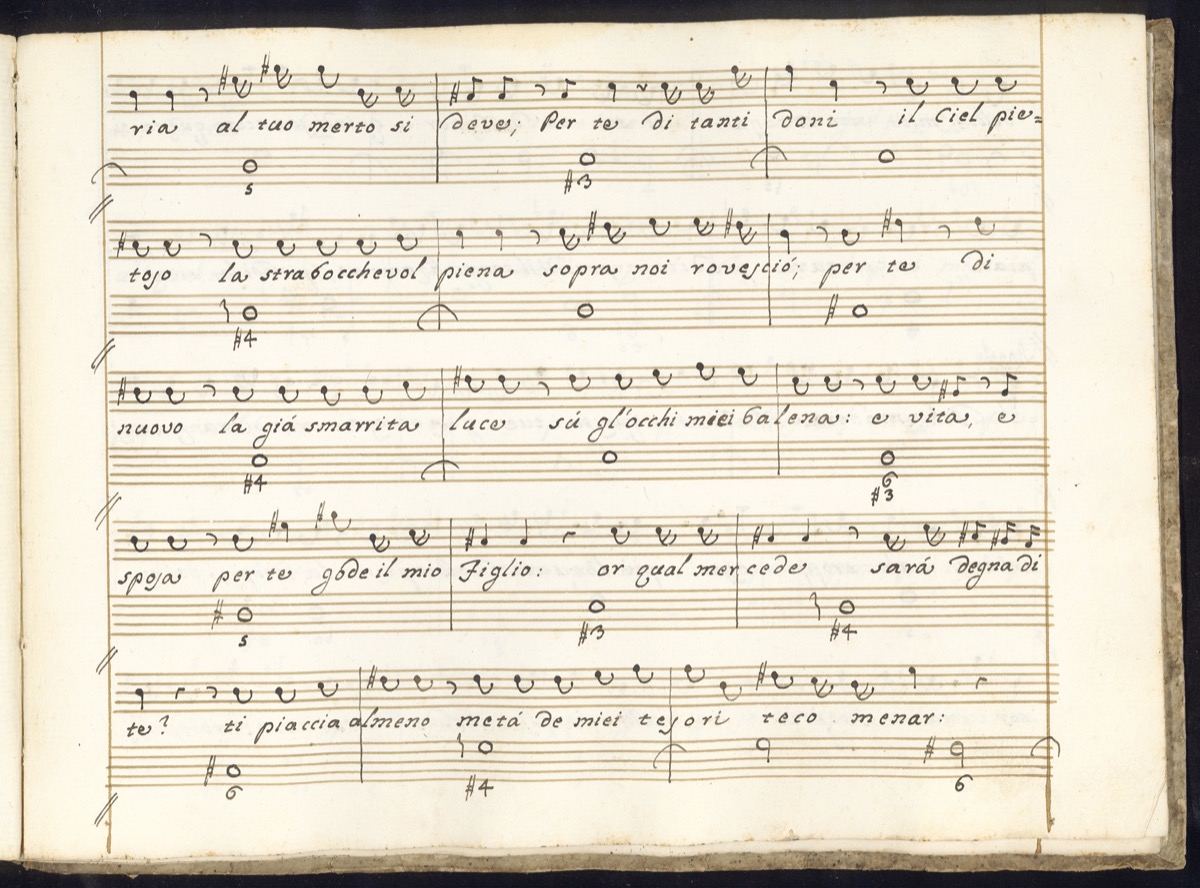 ria al tuo merto si deve; Per te di tanti doni il Ciel pie=
5 #3
toso la strabocchevol piena sopra noi rovesció; per te di
#4
nuovo la giá smarrita luce sú gl'occhi miei balena: e vita, e
#4 6 #3
sposa per te gode il mio Figlio: or qual mercede sará degna di
5 #3 #4
te? ti piaccia almeno metá de miei tesori teco menar:
6 #4 6